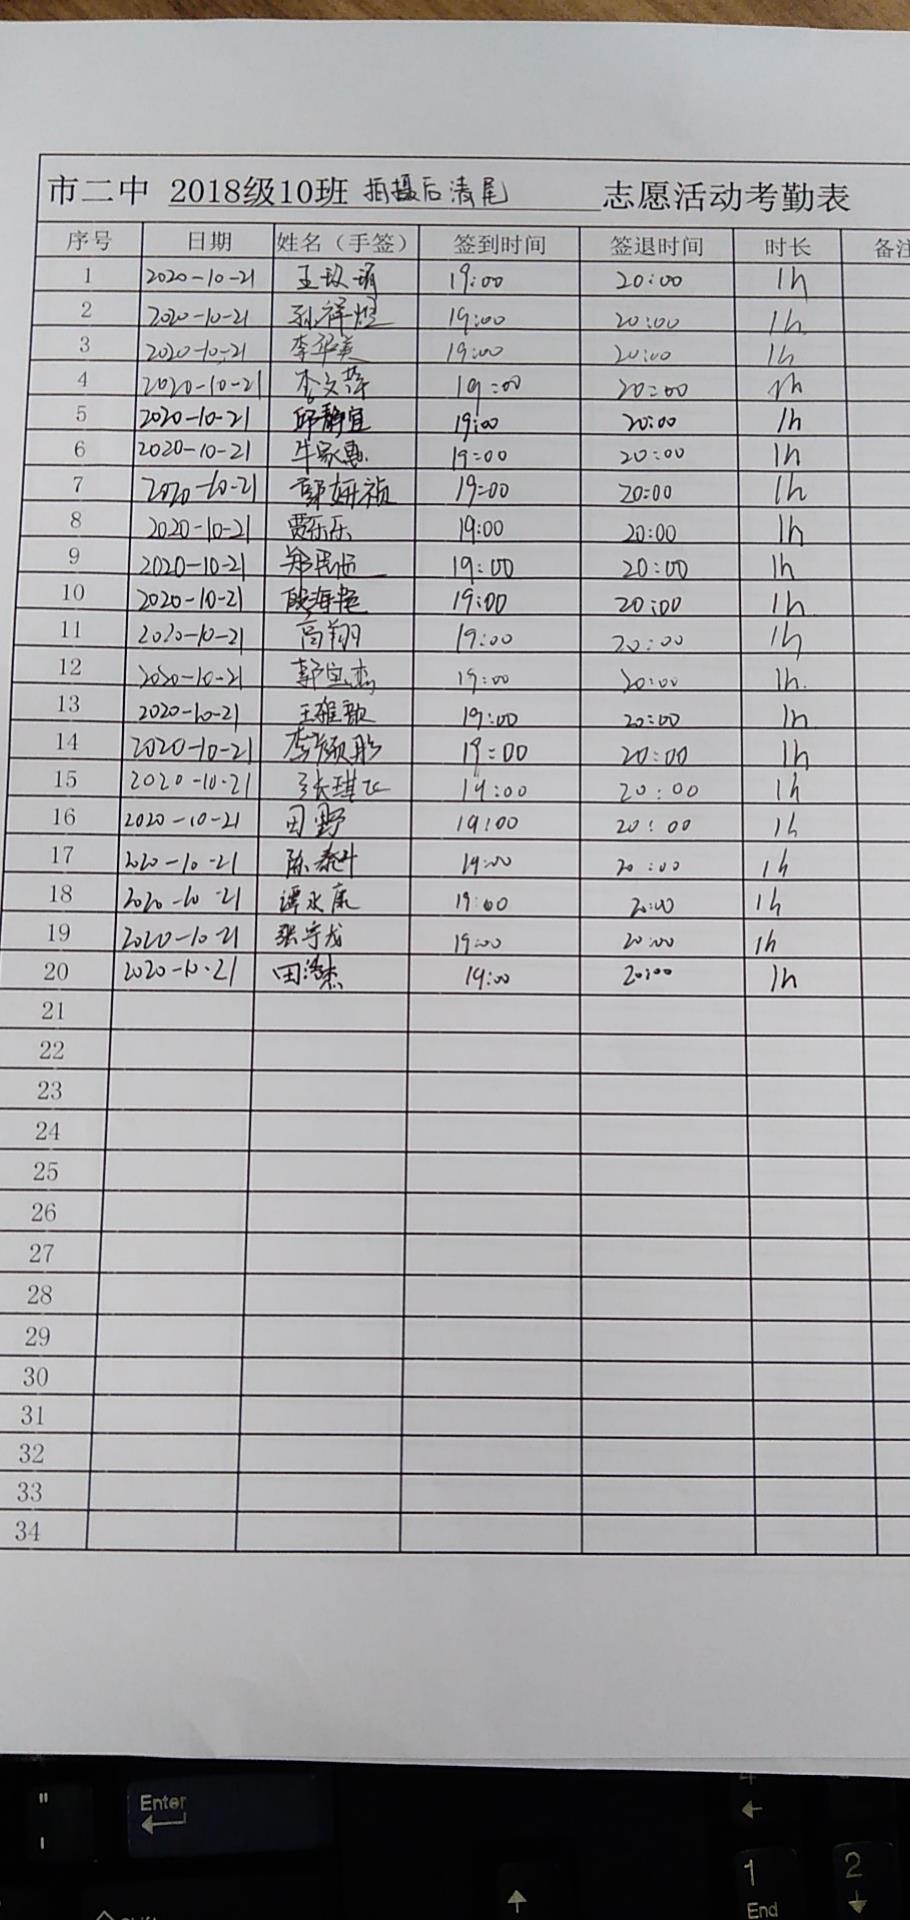 市二中 2018级10班 拍摄后清尾 志愿活动考勤表
序号 日期 姓名（手签） 签到时间 签退时间 时长 备注
1 2020-10-21 王 19:00 20:00 1h
2 2020-10-21 孙祥煜 19:00 20:00 1h
3 2020-10-21 李华美 19:00 20:00 1h
4 2020-10-21 李文萍 19:00 20:00 1h
5 2020-10-21 邱静宜 19:00 20:00 1h
6 2020-10-21 牛家惠 19:00 20:00 1h
7 2020-10-21 郭妍祯 19:00 20:00 1h
8 2020-10-21 贾乐乐 19:00 20:00 1h
9 2020-10-21 郑 19:00 20:00 1h
10 2020-10-21 段海艳 19:00 20:00 1h
11 2020-10-21 高翔 19:00 20:00 1h
12 2020-10-21 郭宜杰 19:00 20:00 1h
13 2020-10-21 王雅歌 19:00 20:00 1h
14 2020-10-21 李颜彤 19:00 20:00 1h
15 2020-10-21 张琪飞 19:00 20:00 1h
16 2020-10-21 田野 19:00 20:00 1h
17 2020-10-21 陈泰斗 19:00 20:00 1h
18 2020-10-21 谭永康 19:00 20:00 1h
19 2020-10-21 张宇龙 19:00 20:00 1h
20 2020-10-21 田浩杰 19:00 20:00 1h
21
22
23
24
25
26
27
28
29
30
31
32
33
34
Enter
1
End
2